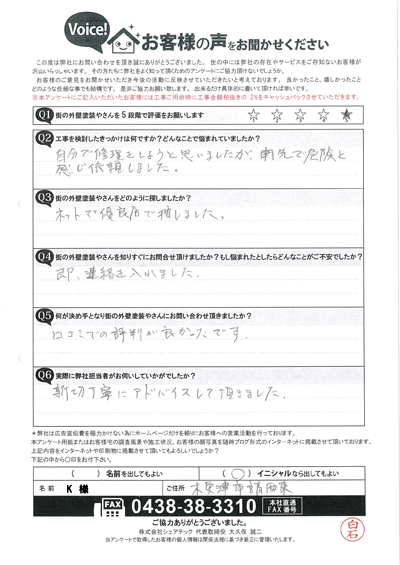 Voice!
お客様の声をお聞かせください
この度は弊社にお問い合わせを頂き誠にありがとうございました。世の中には弊社の存在やサービスをご存知ないお客様が
沢山いらっしゃいます。その方たちに弊社をよく知って頂くためのアンケートにご協力頂けないでしょうか。
お客様のご意見をお聞かせいただき今後の活動に反映させていただきたいと考えております。良かったこと、嬉しかったこと
どのような些細な事でも結構です。是非ご協力お願い致します。出来るだけ具体的に書いて頂ければ幸いです。
※本アンケートにご記入いただいたお客様には工事ご用命時に工事金額税抜きの 2%をキャッシュバックさせていただきます。
Q1 街の外壁塗装やさんを5段階で評価をお願いします ☆ ☆ ☆ ☆ ★
Q2 工事を検討したきっかけは何ですか?どんなことで悩まれていましたか?
自分で修理をしようと思いましたが、軒先で危険と
感じ依頼しました。
Q3 街の外壁塗装やさんをどのように探しましたか?
ネットで優良店で捜しました。
Q4 街の外壁塗装やさんを知りすぐにお問合せ頂けましたか?もし悩まれたとしたらどんなことがご不安でしたか?
即、連絡を入れました。
Q5 何が決め手となり街の外壁塗装やさんにお問い合わせ頂きましたか?
口コミでの評判が良かったです。
Q6 実際に弊社担当者がお伺いしていかがでしたか?
新切丁寧にアドバイスして頂きました。
※弊社は広告宣伝費を極力かけない為にホームページだけを頼りにお客様への営業活動を行っております。
本アンケート用紙またはお客様宅の調査風景や施工状況、お客様の顔写真を随時ブログ形式のインターネットに掲載させて頂いております。
上記内容をインターネットや印刷物に掲載させて頂いてもよろしいでしょうか?
下記の中から〇印をお付け下さい。
( ) 名前を出してもよい ( 〇 ) イニシャルなら出してもよい
名前 K 様 ご住所 木更津市請西東
FAX 0438-38-3310 本社直通 FAX番号
ご協力ありがとうございました。
株式会社シェアテック 代表取締役 大久保 誠二
当アンケートで取得したお客様の個人情報は関係法規に基づき厳正に管理いたします。
白石